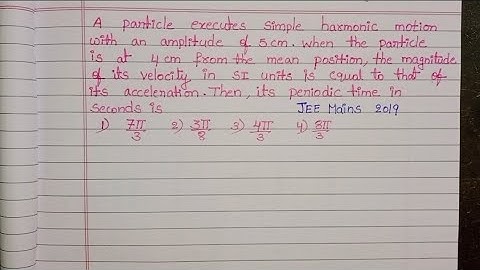 A particle executes simple harmonic motion
with an amplitude of 5cm. when the particle
is at 4 cm from the mean position, the magnitude
of its velocity in SI units is equal to that of
its acceleration. Then, its periodic time in
seconds is JEE Mains 2019
1) 7π/3 2) 3π/8 3) 4π/3 4) 8π/3